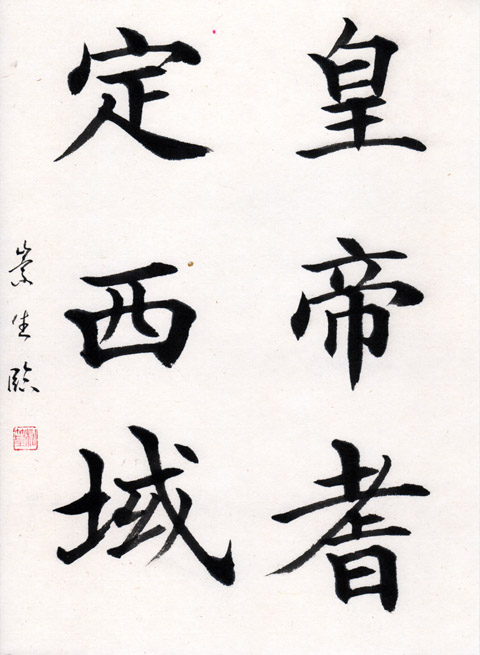 皇帝耆
定西域
崇生臨